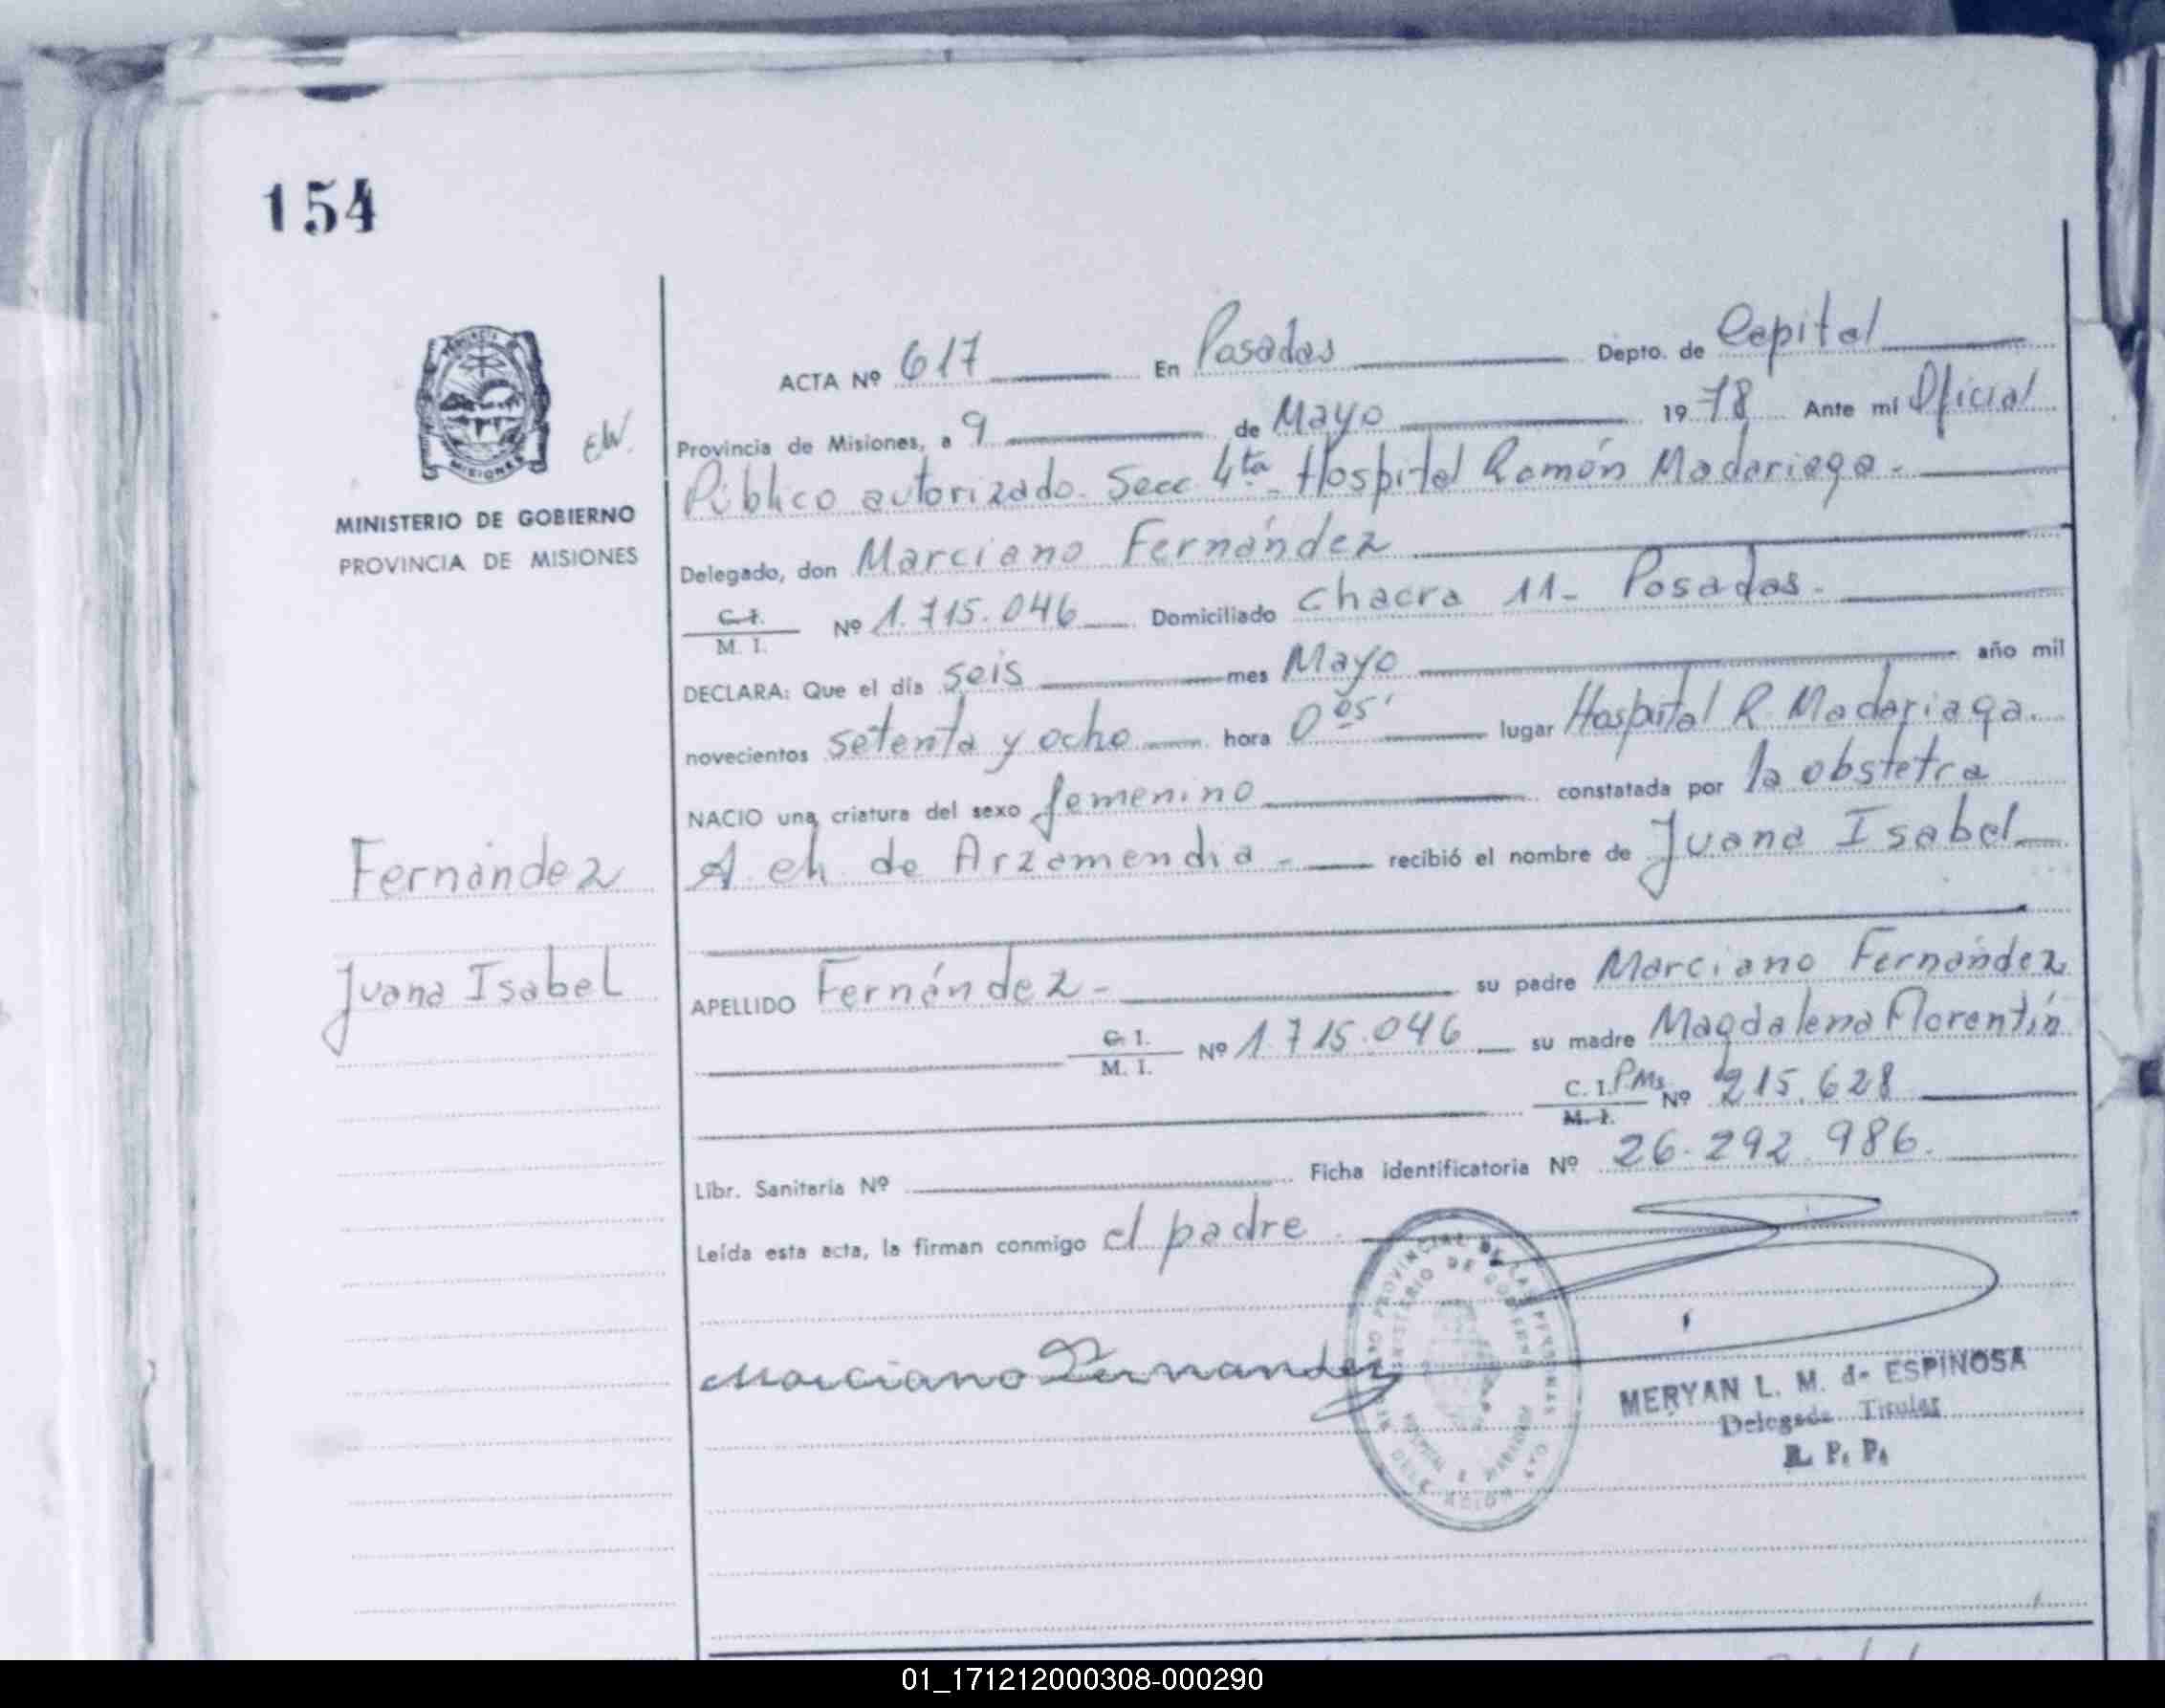 154
ACTA Nº 617 En Posadas Depto. de Capital
Provincia de Misiones, a 9 de Mayo 1978 Ante mí Oficial
E.W.
Público autorizado. Secc 4ta - Hospital Ramón Madariaga -
MINISTERIO DE GOBIERNO
PROVINCIA DE MISIONES
Delegado, don Marciano Fernández
C. I.
M. I.
Nº 1.715.046 Domiciliado Chacra 11 - Posadas -
DECLARA: Que el día seis mes Mayo año mil
novecientos setenta y ocho hora 0 05' lugar Hospital R. Madariaga.
NACIO una criatura del sexo femenino constatada por la obstetra
Fernández
A. ch. de Arzamendia - recibió el nombre de Juana Isabel
Juana Isabel
APELLIDO Fernández - su padre Marciano Fernández
C. I.
M. I.
Nº 1.715.046 su madre Magdalena Florentín
C. I. P.Ms Nº 215.628
M. I.
Libr. Sanitaria Nº Ficha identificatoria Nº 26.292.986.
Leída esta acta, la firman conmigo el padre
Marciano Fernandez
MERYAN L. M. de ESPINOSA
Delegada Titular
R. P. P.
01_171212000308-000290